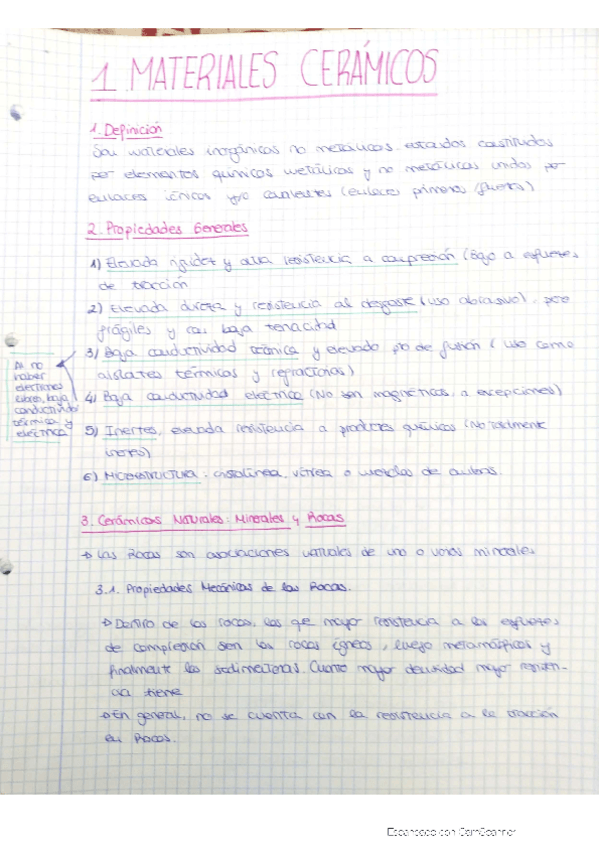 1 MATERIALES CERÁMICOS
1. Definición
Son materiales inorgánicos no metálicos estando constituidos
por elementos químicos metálicos y no metálicos unidos por
enlaces iónicos y/o covalentes (enlaces primarios fuertes)
2. Propiedades Generales
1) Elevada rigidez y alta resistencia a compresión (Bajo a esfuerzos
de tracción
2) Elevada dureza y resistencia al desgaste (uso abrasivo), pero
frágiles y con baja tenacidad
3) Baja conductividad térmica y elevado pto de fusión (uso como
aislantes térmicos y refractarios)
Al no
haber
electrones
libres, baja
conductividad
térmica y
eléctrica
4) Baja conductividad eléctrica (No son magnéticos, a excepciones)
5) Inertes, elevada resistencia a productos químicos (No totalmente
inertes)
6) MICROESTRUCTURA: cristalina, vítrea o mezclas de ambas.
3. Cerámicos Naturales: Minerales y Rocas
→ Las Rocas son asociaciones naturales de uno o varios minerales
3.1. Propiedades Mecánicas de las Rocas.
→ Dentro de las rocas, las que mayor resistencia a los esfuerzos
de compresión son las rocas ígneas, luego metamórficas y
finalmente las sedimentarias. Cuanto mayor densidad mayor resisten-
cia tiene
→ En general, no se cuenta con la resistencia a la tracción
en Rocas.
Escaneado con CamScanner